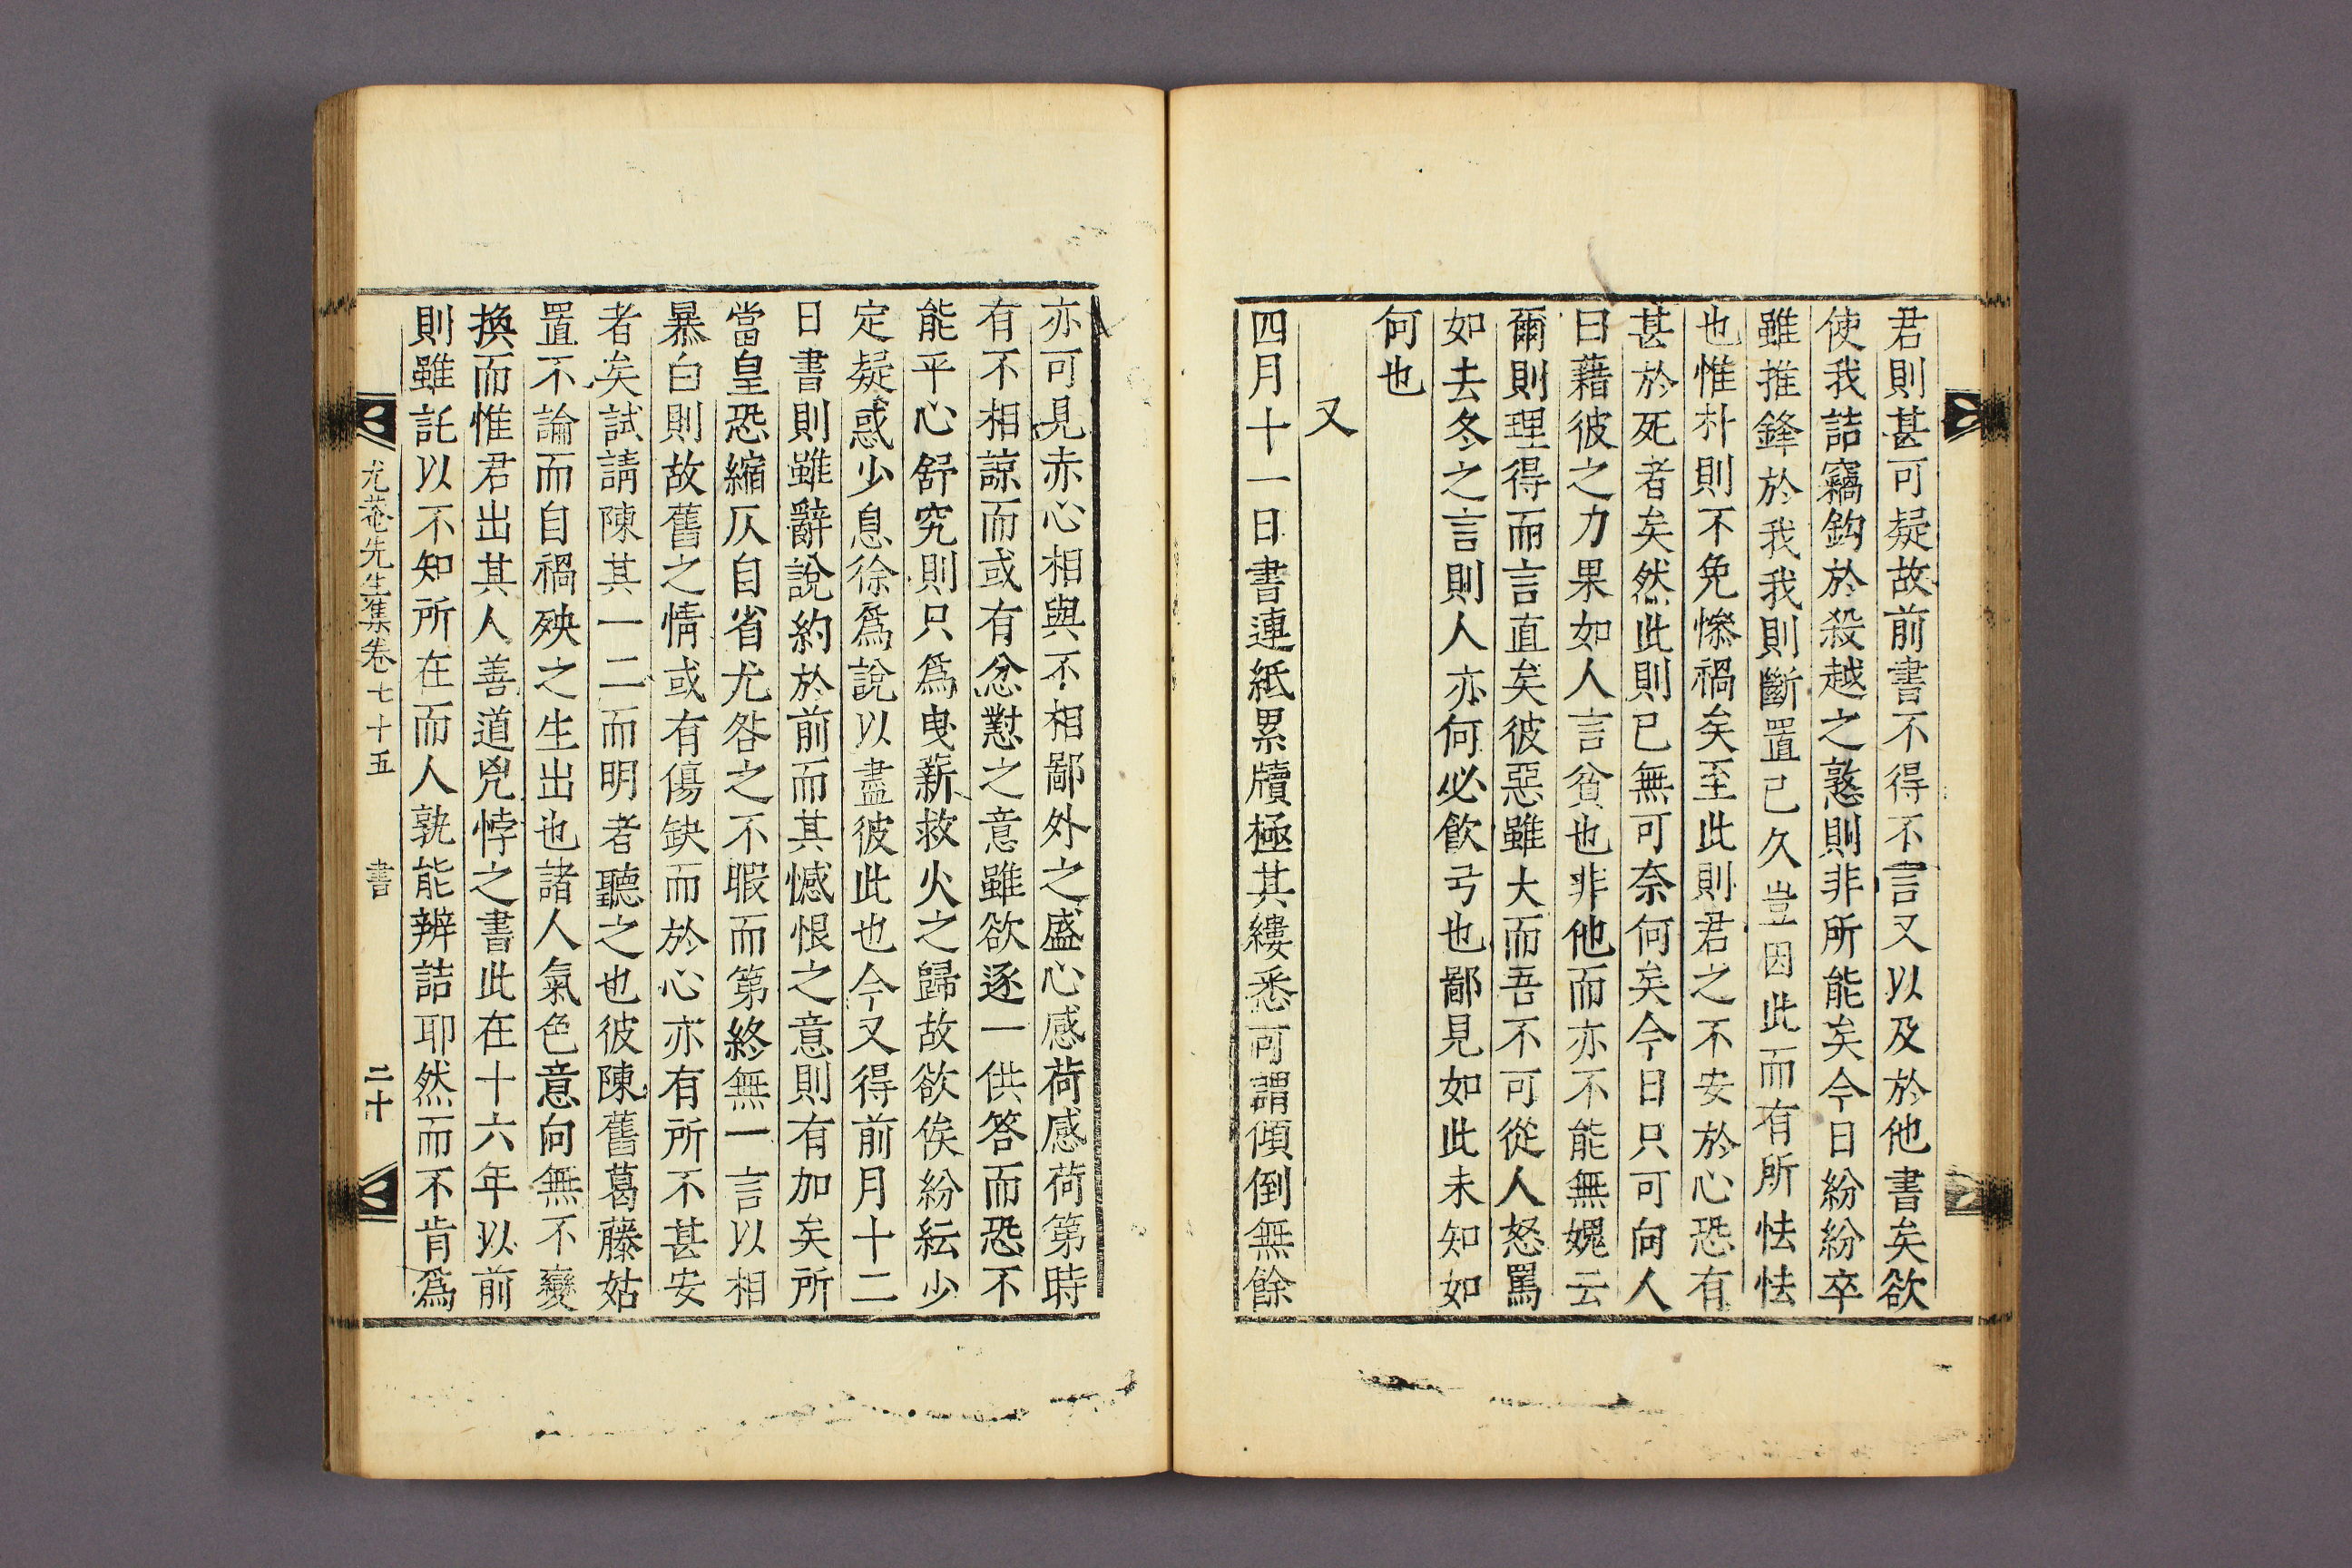 君則甚可疑故前書不得不言又以及於他書矣欲
使我詰竊鈎於殺越之憝則非所能矣今日紛紛卒
雖推鋒於我我則斷置已久豈因此而有所怯怯
也惟朴則不免慘禍矣至此則君之不安於心恐有
甚於死者矣然此則已無可奈何矣今日只可向人
曰藉彼之力果如人言貧也非他而亦不能無媿云
爾則理得而言直矣彼惡雖大而吾不可從人怒罵
如去冬之言則人亦何必飮弓也鄙見如此未知如
何也
又
四月十一日書連紙累牘極其縷悉可謂傾倒無餘
亦可見赤心相與不相鄙外之盛心感荷感荷第時
有不相諒而或有忿懟之意雖欲逐一供答而恐不
能平心舒究則只爲曳薪救火之歸故欲俟紛紜少
定疑惑少息徐爲說以盡彼此也今又得前月十二
日書則雖辭說約於前而其憾恨之意則有加矣所
當皇恐縮仄自省尤咎之不暇而第終無一言以相
暴白則故舊之情或有傷缺而於心亦有所不甚安
者矣試請陳其一二而明者聽之也彼陳舊葛藤姑
置不論而自禍殃之生出也諸人氣色意向無不變
換而惟君出其人善道兇悖之書此在十六年以前
則雖託以不知所在而人孰能辨詰耶然而不肯爲
尤菴先生集卷七十五 書 二十